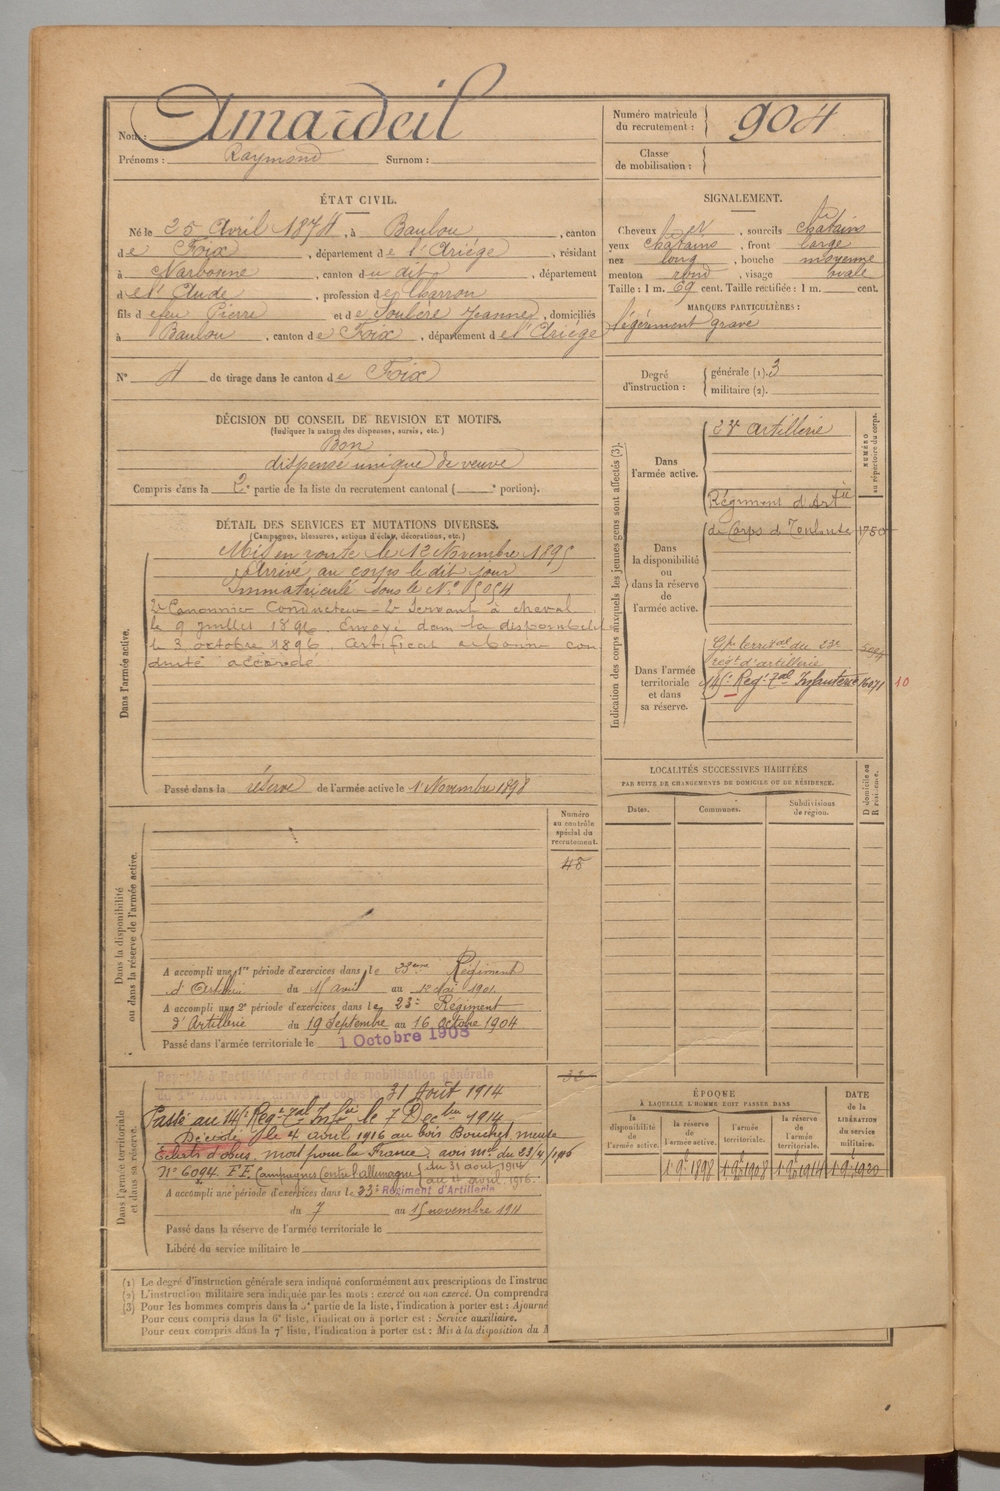 Nom : Amardeil
Prénoms : Raymond Surnom :
Numéro matricule du recrutement : 904
Classe de mobilisation :
ÉTAT CIVIL.
Né le 25 Avril 1874, à Baulou, canton
de Foix, département de l'Ariège, résidant
à Narbonne, canton du dit, département
de l'Aude, profession de Charron
fils de feu Pierre et de Soulère Jeanne, domiciliés
à Baulou, canton de Foix, département de l'Ariège
N° 4 de tirage dans le canton de Foix
SIGNALEMENT.
Cheveux, sourcils châtains
yeux châtains, front large
nez long, bouche moyenne
menton rond, visage ovale
Taille : 1 m. 69 cent. Taille rectifiée : 1 m. cent.
MARQUES PARTICULIÈRES :
légèrement gravé
Degré d'instruction : générale (1). 3
militaire (2).
DÉCISION DU CONSEIL DE REVISION ET MOTIFS.
(Indiquer la nature des dispenses, sursis, etc.)
Bon
dispensé unique de veuve
Compris dans la 2e partie de la liste du recrutement cantonal ( e portion).
DÉTAIL DES SERVICES ET MUTATIONS DIVERSES.
(Campagnes, blessures, actions d'éclat, décorations, etc.)
Dans l'armée active.
Mis en route le 12 Novembre 1895
Arrivé au corps le dit jour
Immatriculé sous le N° 5054
2e Canonnier Conducteur - 2e Servant à cheval
le 9 juillet 1896. Envoyé dans la disponibilité
le 3 octobre 1896. Certificat de bonne con
duite accordé
Passé dans la réserve de l'armée active le 1er Novembre 1898
Indication des corps auxquels les jeunes gens sont affectés (3).
NUMÉRO au répertoire du corps.
Dans l'armée active.
23e artillerie
Dans la disponibilité ou dans la réserve de l'armée active.
Régiment d'Art ie
de Corps d Toulouse 1750
Dans l'armée territoriale et dans sa réserve.
Gpe territal du 23e
régt d'artillerie
14 Regt Tal Infanterie 16071 10
LOCALITÉS SUCCESSIVES HABITÉES
PAR SUITE DE CHANGEMENTS DE DOMICILE OU DE RÉSIDENCE.
Dates. Communes. Subdivisions de région. D domicile ou R résidence.
Dans la disponibilité ou dans la réserve de l'armée active.
Numéro au contrôle spécial du recrutement.
48
A accompli une 1re période d'exercices dans le 23ème Régiment
d'Artillerie du 15 avril au 12 Mai 1901
A accompli une 2e période d'exercices dans le 23e Régiment
d'Artillerie du 19 Septembre au 16 octobre 1904
Passé dans l'armée territoriale le 1 Octobre 1908
Dans l'armée territoriale et dans sa réserve.
32
Rappelé à l'activité par décret de mobilisation générale
du 1er Août 31 Août 1914
Passé au 14 Regt Tal Infie le 7 Décbre 1914
Décédé le 4 avril 1916 au bois Bouchet meuse
Eclats d'obus, mort pour la France, avis mel du 23/4/1916
N° 6094. F.E. Campagnes contre l'allemagne du 31 août 1914
au 4 avril 1916.
A accompli une période d'exercices dans le 23e Régiment d'Artillerie
du 7 au 15 novembre 1911
Passé dans la réserve de l'armée territoriale le
Libéré du service militaire le
ÉPOQUE
A LAQUELLE L'HOMME DOIT PASSER DANS
la disponibilité de l'armée active. la réserve de l'armée active. l'armée territoriale. la réserve de l'armée territoriale.
DATE de la LIBÉRATION du service militaire.
1 9e 1898 1 9e 1908 1 9e 1914 1 9e 1920
(1) Le degré d'instruction générale sera indiqué conformément aux prescriptions de l'instruc
(2) L'instruction militaire sera indiquée par les mots : exercé ou non exercé. On comprendra
(3) Pour les hommes compris dans la 5e partie de la liste, l'indication à porter est : Ajourné
Pour ceux compris dans la 6e liste, l'indication à porter est : Service auxiliaire.
Pour ceux compris dans la 7e liste, l'indication à porter est : Mis à la disposition du M